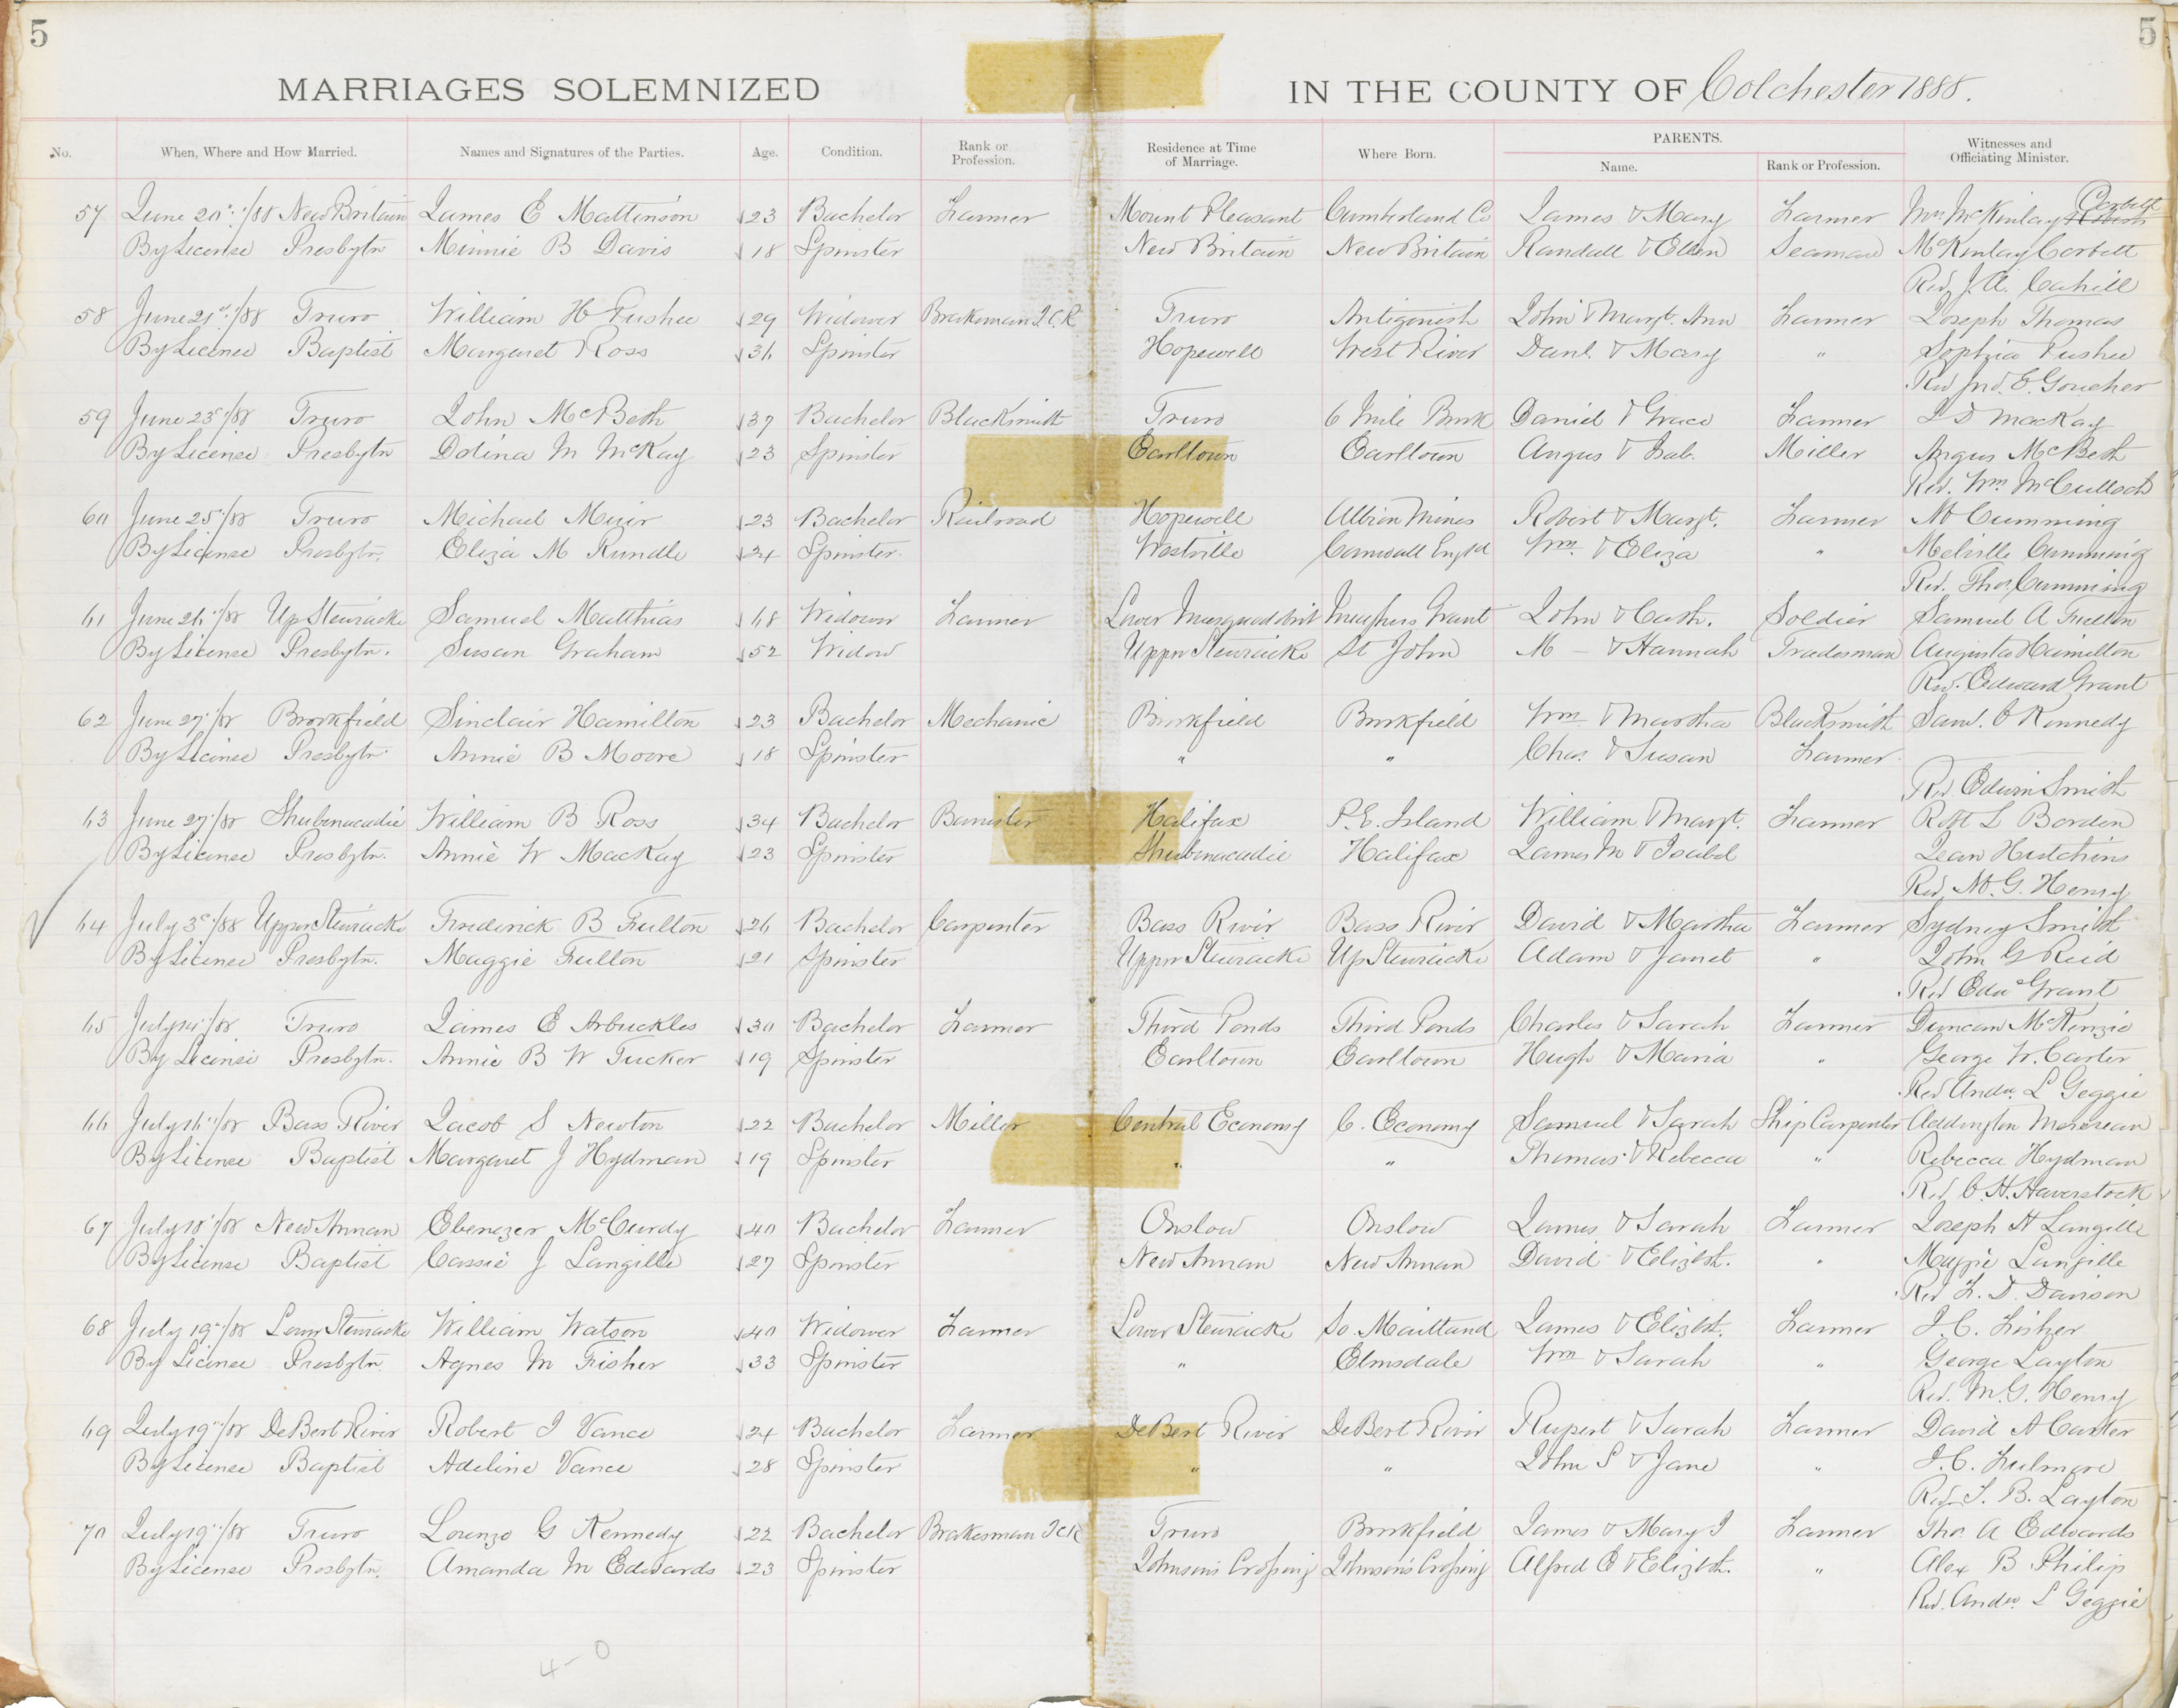 5
5
MARRIAGES SOLEMNIZED IN THE COUNTY OF Colchester 1888.
No. When, Where and How Married. Names and Signatures of the Parties. Age. Condition. Rank or Profession. Residence at Time of Marriage. Where Born. PARENTS. Name. Rank or Profession. Witnesses and Officiating Minister.
57 June 20th/88 New Britain James E Mattinson 23 Bachelor Farmer Mount Pleasant Cumberland Co James & Mary Farmer Wm McKinlay Corbett
By License Presbytn Minnie B Davis 18 Spinster New Britain New Britain Randall & Ellen Seaman McKinlay Corbett
Rev J. A. Cahill
58 June 21st/88 Truro William H Pushee 29 Widower Brakeman I.C.R Truro Antigonish John & Margt. Ann Farmer Joseph Thomas
By License Baptist Margaret Ross 36 Spinster Hopewell West River Danl. & Mary " Sophia Pushee
Rev Jno. E. Goucher
59 June 23d/88 Truro John McBeth 37 Bachelor Blacksmith Truro 6 Mile Brook Daniel & Grace Farmer MacKay
By License Presbytn Dolina M McKay 23 Spinster Earltown Earltown Angus & Isab. Miller Angus McBeth
Rev. Wm McCulloch
60 June 25/88 Truro Michael Muir 23 Bachelor Railroad Hopewell Albion Mines Robert & Margt. Farmer M Cumming
By License Presbytn. Eliza M Rundle 24 Spinster Westville Cornwall Engld Wm. & Eliza " Melville Cumming
Rev. Thos. Cumming
61 June 26/88 Up Stewiacke Samuel Matthias 68 Widower Farmer Lower Musquodoboit Meaghers Grant John & Cath. Soldier Samuel A Fulton
By License Presbytn. Susan Graham 52 Widow Upper Stewiacke St John M — & Hannah Tradesman Augusta Hamilton
Rev. Edward Grant
62 June 27/88 Brookfield Sinclair Hamilton 23 Bachelor Mechanic Brookfield Brookfield Wm & Martha Blacksmith Saml. C Kennedy
By License Presbytn Annie B Moore 18 Spinster " " Chas. & Susan Farmer
Rev Edwin Smith
63 June 27/88 Shubenacadie William B Ross 34 Bachelor Barrister Halifax P.E. Island William & Margt. Farmer Robt L Borden
By License Presbytn. Annie W MacKay 23 Spinster Shubenacadie Halifax James M & Isabel Jean Hutchins
Rev. M. G. Henry
64 July 3d/88 Upper Stewiacke Frederick B Fulton 26 Bachelor Carpenter Bass River Bass River David & Martha Farmer Sydney Smith
By License Presbytn. Maggie Fulton 21 Spinster Upper Stewiacke Up Stewiacke Adam & Janet " John G Reid
Rev Edwd Grant
65 July /88 Truro James E Arbuckles 30 Bachelor Farmer Third Ponds Third Ponds Charles & Sarah Farmer Duncan McKenzie
By License Presbytn. Annie B W Tucker 19 Spinster Earltown Earltown Hugh & Maria " George W. Carter
Rev Andw. L Geggie
66 July 16/88 Bass River Jacob S Newton 22 Bachelor Miller Central Economy C. Economy Samuel & Sarah Ship Carpenter Addington
By License Baptist Margaret J Hydman 19 Spinster " " Thomas & Rebecca " Rebecca Hydman
Rev C. H. Haverstock
67 July 18/88 New Annan Ebenezer McCurdy 40 Bachelor Farmer Onslow Onslow James & Sarah Farmer Joseph H Langille
By License Baptist Cassie J Langille 27 Spinster New Annan New Annan David & Elizbth. " Maggie Langille
Rev F. D. Davison
68 July 19/88 Lower Stewiacke William Watson 40 Widower Farmer Lower Stewiacke So. Maitland James & Elizbth. Farmer J. C. Fisher
By License Presbytn. Agnes M Fisher 33 Spinster " Elmsdale Wm & Sarah " George Layton
Rev. M. G. Henry
69 July 19/88 DeBert River Robert I Vance 24 Bachelor Farmer DeBert River DeBert River Rupert & Sarah Farmer David A Carter
By License Baptist Adeline Vance 28 Spinster " " John S & Jane " J. C. Fulmore
Rev. T. B. Layton
70 July 19/88 Truro Lorenzo G Kennedy 22 Bachelor Brakesman I.C.R Truro Brookfield James & Mary J Farmer Tho. A Edwards
By License Presbytn. Amanda M Edwards 23 Spinster Johnson's Crossing Johnson's Crossing Alfred E & Elizbth. " Alex B Philip
Rev. Andw. L Geggie
4-0